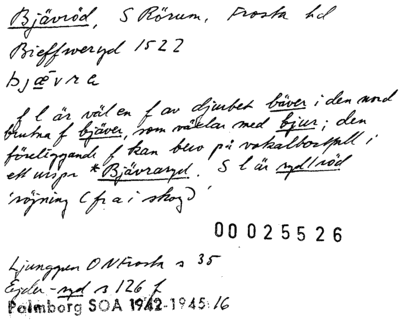 Bjävröd, S Rörum, Frosta hd
Bieffweryd 1522
bjævra
f l är väl en f av djurbet bäver i den nord
brutna f bjäver, som växlar med bjur; den
föreliggande f kan bero på vokalbortfall i
ett urspr *Bjävraryd. S l är ryd/röd
'röjning (fr a i skog)'
00025526
Ljunggren ON Frosta s 35
Ejder -ryd s 126 f
Palmborg SOA 1942-1945:16